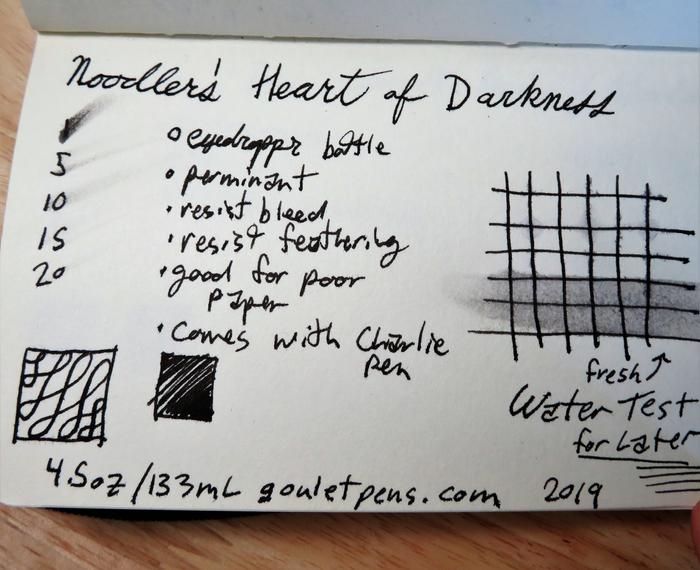 Noodler's Heart of Darkness
• eyedroppr bottle
5
• perminant
10
• resist bleed
15
• resist feathering
20
• good for poor
paper
• Comes with Charlie
Pen
fresh
Water Test
for Later
4.5oz/133mL gouletpens.com 2019